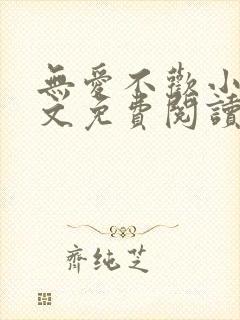 無愛不歡小
文免費閱讀
齊純芝